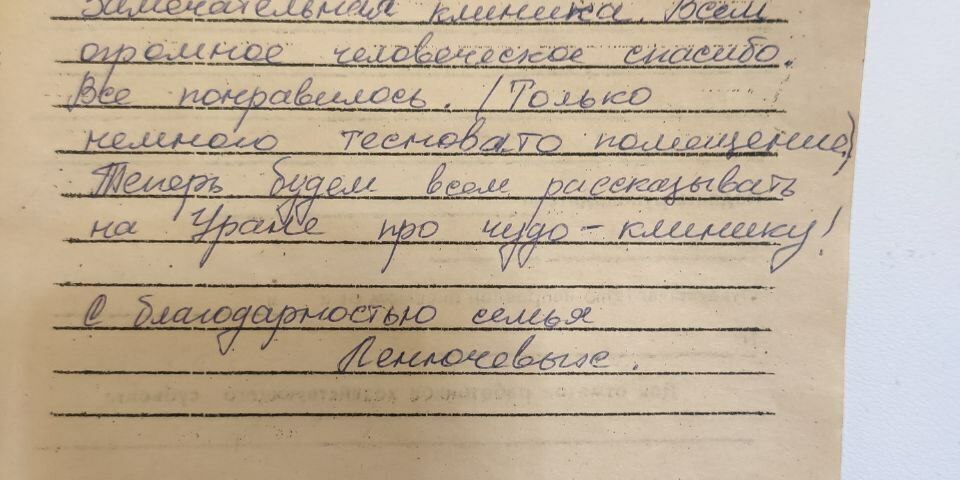 Замечательная клиника. Всем
огромное человеческое спасибо.
Все понравилось. (Только
немного тесновато помещение)
Теперь будем всем рассказывать
на Урале про чудо-клинику!
С благодарностью семья